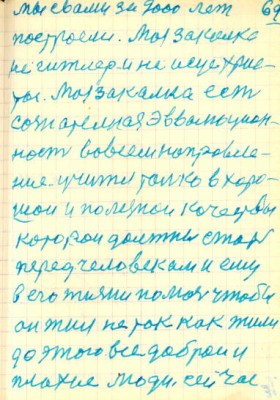 мы с вами за 2000 лет 69
построели. Моя закалка
не гитлер и не исус хрис-
тос. Моя закалка есть
сознателная Эвалюцион-
ность во всем напровле-
ние учится толко в хоро-
шои и полезнои качествы
которои должны стать
перед человекам и ему
в его жизни помоч чтобы
он жил не так как жили
до этого все доброи и
плохие люди. сейчас